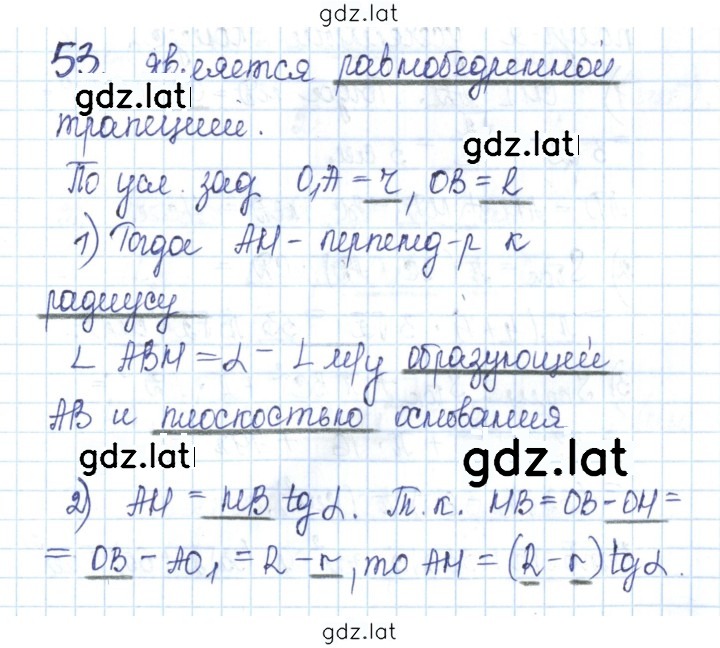 gdz.lat
53 является равнобедренной
gdz.lat
трапеции.
gdz.lat
По усл. зад O₁A = r, OB = R
1) Тогда AM - перпенд-р к
радиусу
∠ ABM = α - ∠ м/у образующей
AB и плоскостью основания
gdz.lat
gdz.lat
2) AM = MB tg α. Т. к. MB = OB - OM =
= OB - AO₁ = R - r, то AM = (R - r) tg α.
gdz.lat